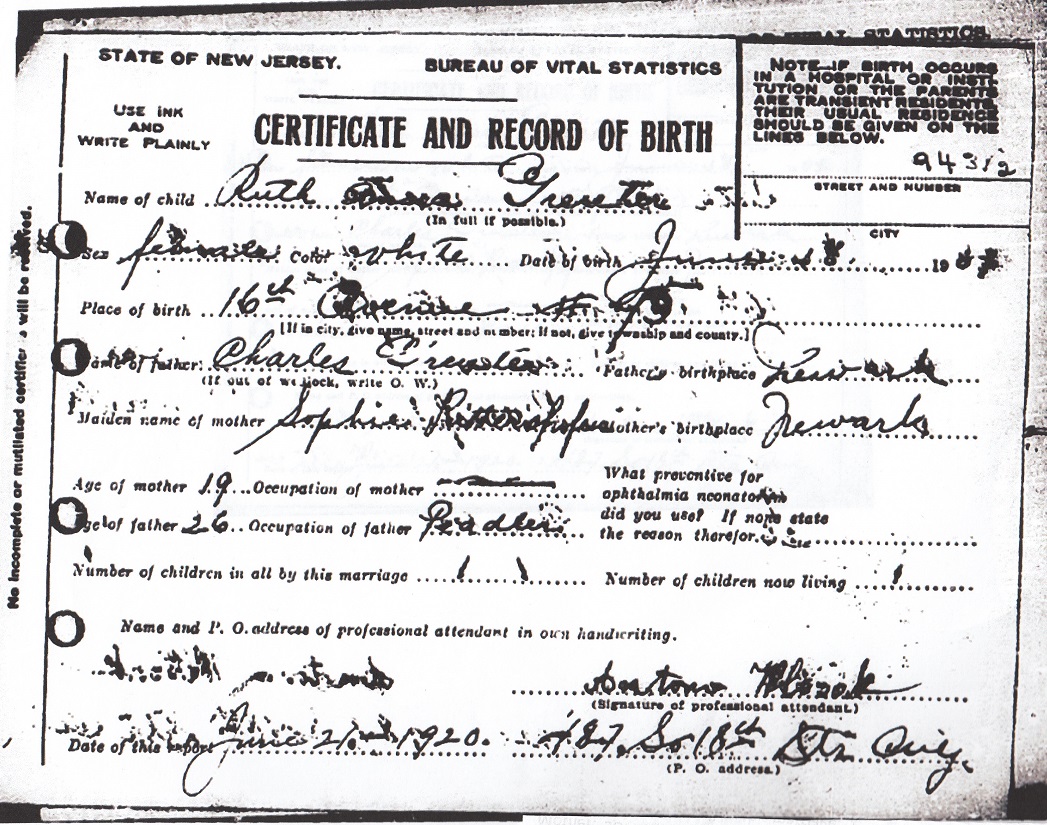 VITAL STATISTICS
STATE OF NEW JERSEY. BUREAU OF VITAL STATISTICS
USE INK
AND
WRITE PLAINLY
CERTIFICATE AND RECORD OF BIRTH
NOTE—IF BIRTH OCCURS
IN A HOSPITAL OR INSTI
TUTION OR THE PARENTS
ARE TRANSIENT RESIDENTS,
THEIR USUAL RESIDENCE
SHOULD BE GIVEN ON THE
LINES BELOW.
94312
STREET AND NUMBER
CITY
Name of child Ruth
(In full if possible.)
Sex female Color white Date of birth June 19
Place of birth 16th Avenue
[If in city, give name, street and number; if not, give township and county.]
Name of father Charles Father's birthplace Newark
(If out of wedlock, write O. W.)
Maiden name of mother Sophie Mother's birthplace Newark
Age of mother 19 Occupation of mother
What preventive for
ophthalmia neonatorum
did you use? If none state
the reason therefor.
Age of father 26 Occupation of father Peadler
Number of children in all by this marriage 1 Number of children now living 1
Name and P. O. address of professional attendant in own handwriting.
(Signature of professional attendant.)
Date of this report June 21. 1920. 487. So 18th Str City.
(P. O. address.)
No incomplete or mutilated certificates will be received.